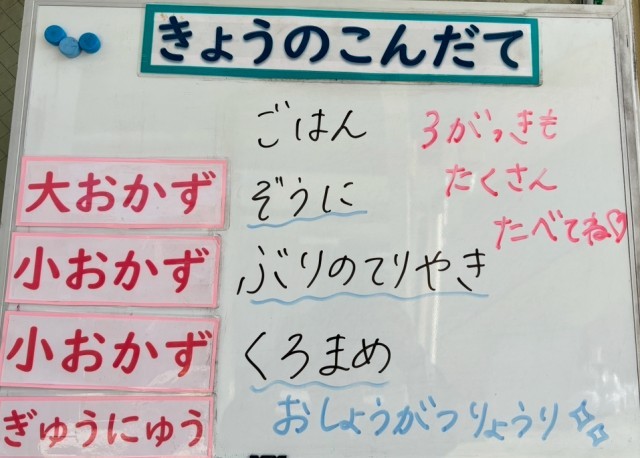 きょうのこんだて
ごはん
3がっきも
たくさん
たべてね♡
大おかず ぞうに
小おかず ぶりのてりやき
小おかず くろまめ
ぎゅうにゅう
おしょうがつりょうり